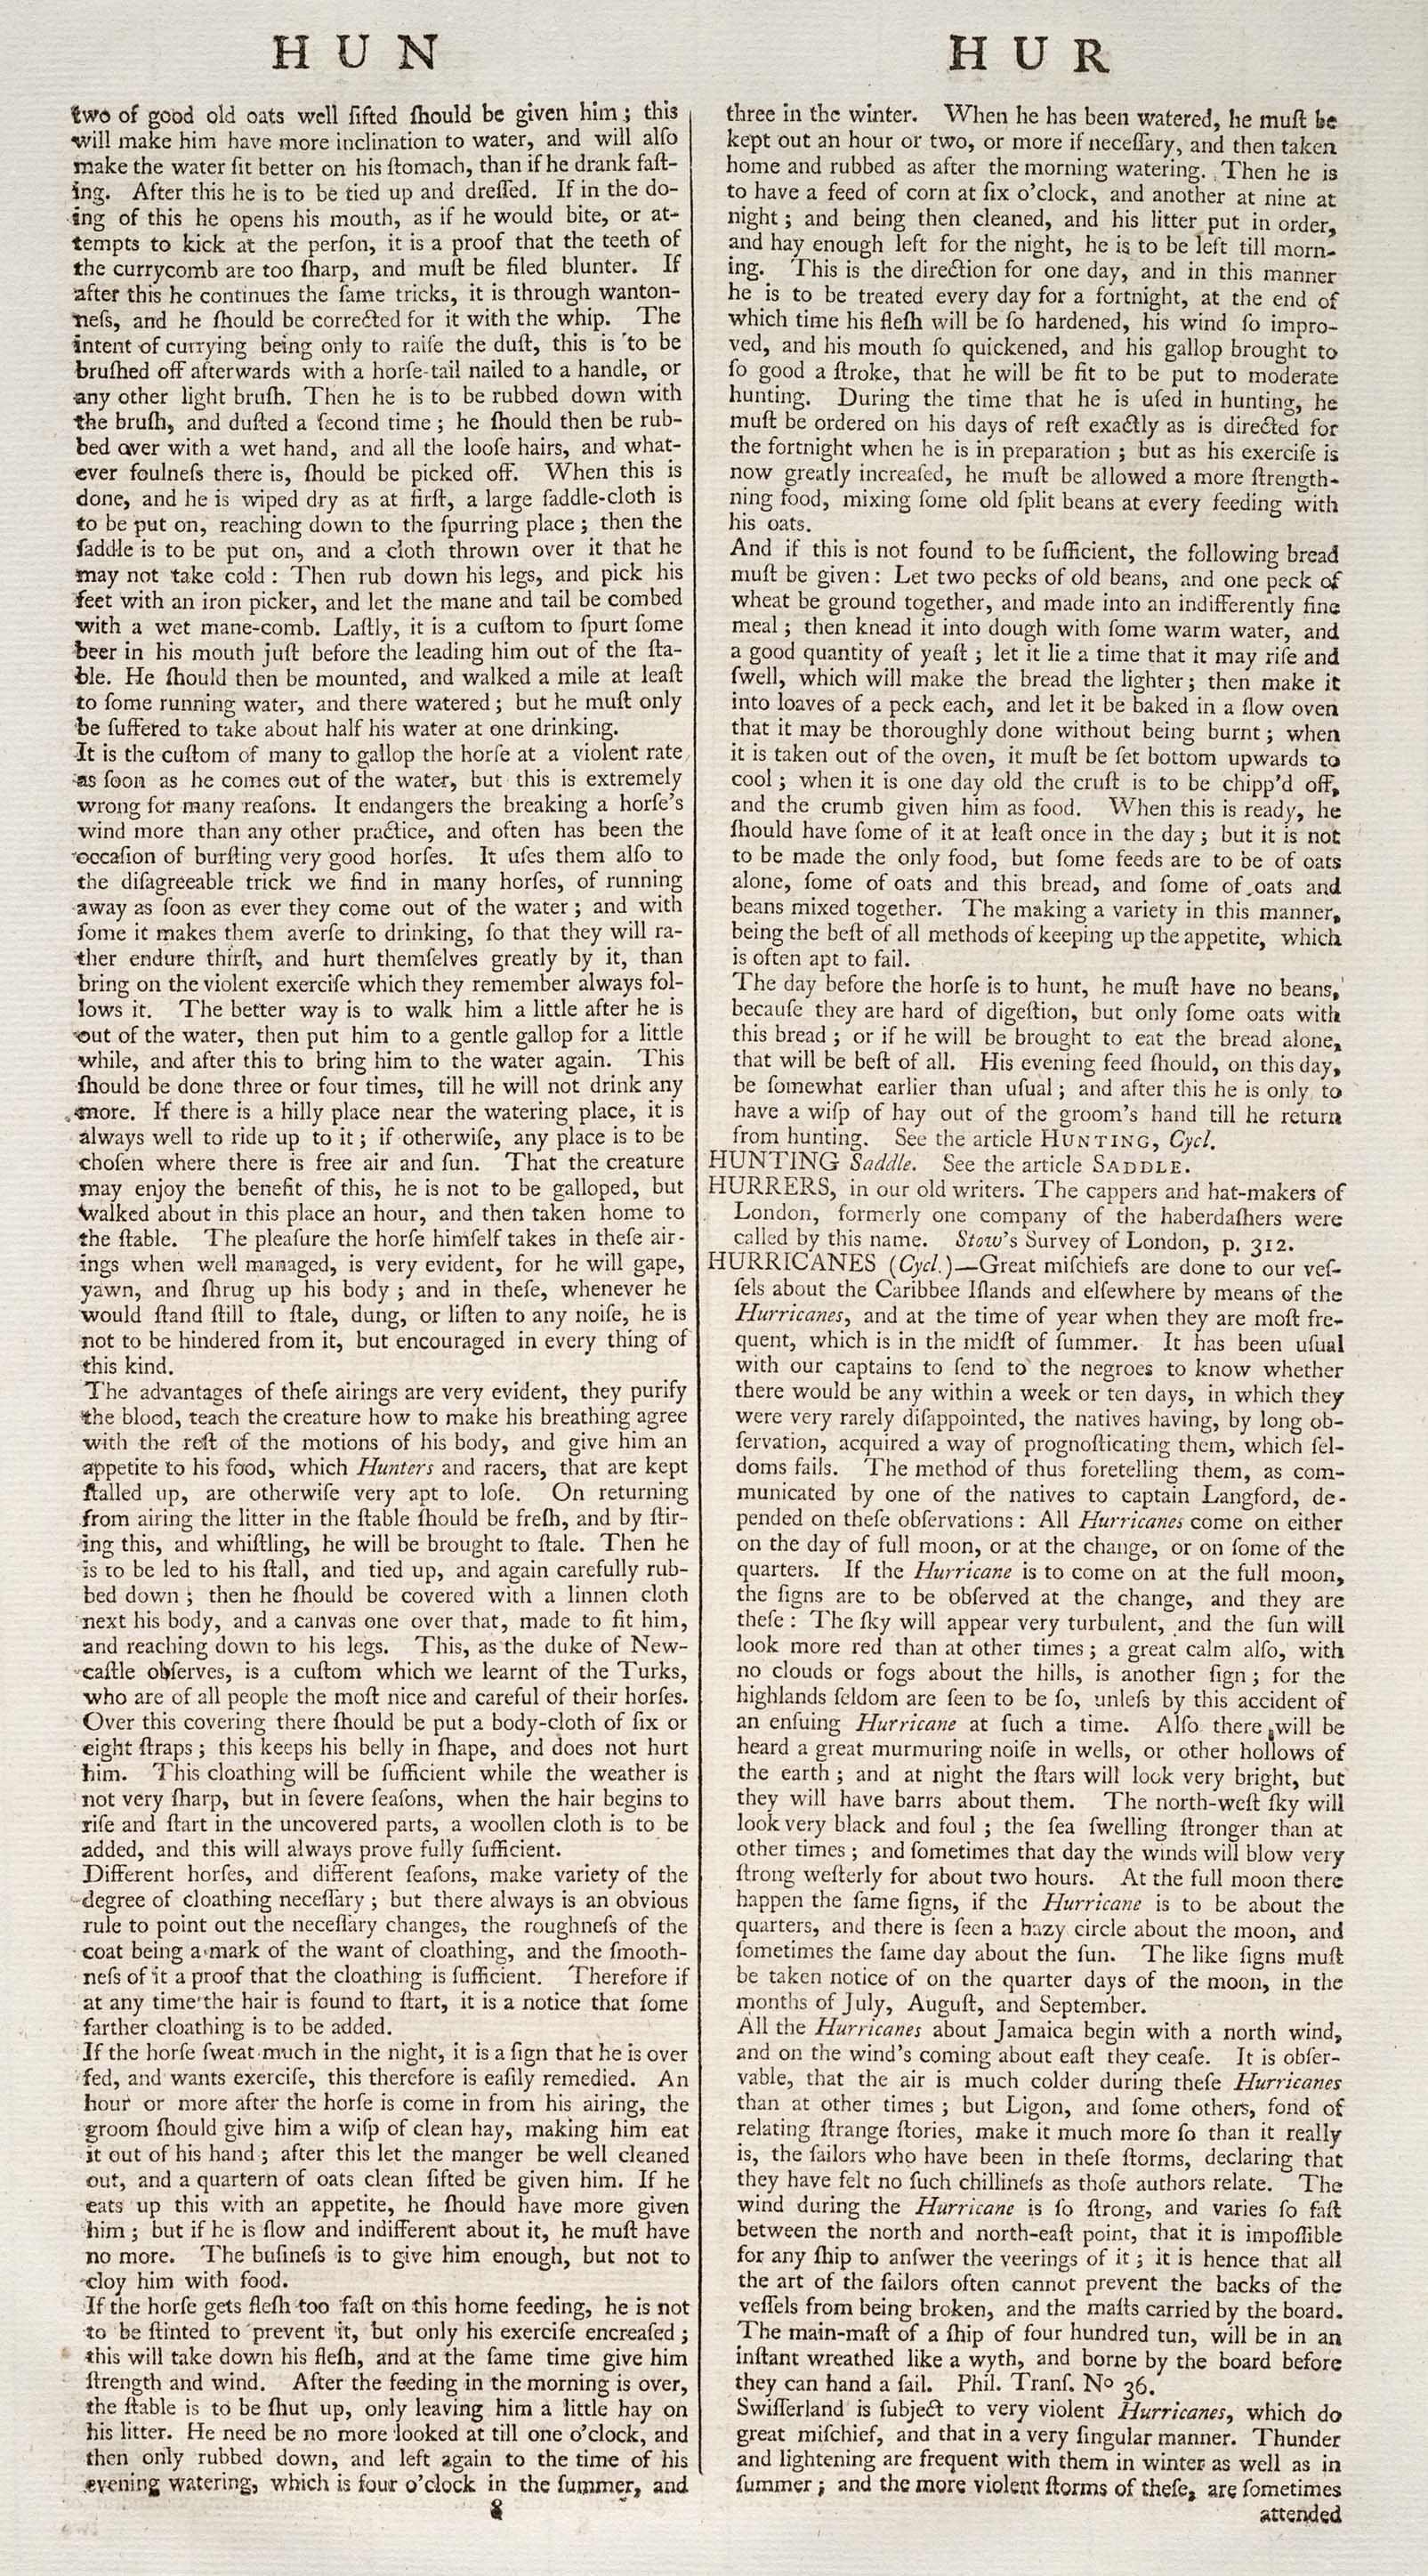 HUN
two of good old oats well ſifted ſhould be given him; this
will make him have more inclination to water, and will alſo
make the water ſit better on his ſtomach, than if he drank faſt-
ing. After this he is to be tied up and dreſſed. If in the do-
ing of this he opens his mouth, as if he would bite, or at-
tempts to kick at the perſon, it is a proof that the teeth of
the currycomb are too ſharp, and muſt be filed blunter. If
after this he continues the ſame tricks, it is through wanton-
neſs, and he ſhould be corrected for it with the whip. The
intent of currying being only to raiſe the duſt, this is to be
bruſhed off afterwards with a horſe-tail nailed to a handle, or
any other light bruſh. Then he is to be rubbed down with
the bruſh, and duſted a ſecond time; he ſhould then be rub-
bed over with a wet hand, and all the looſe hairs, and what-
ever foulneſs there is, ſhould be picked off. When this is
done, and he is wiped dry as at firſt, a large ſaddle-cloth is
to be put on, reaching down to the ſpurring place; then the
ſaddle is to be put on, and a cloth thrown over it that he
may not take cold: Then rub down his legs, and pick his
feet with an iron picker, and let the mane and tail be combed
with a wet mane-comb. Laſtly, it is a cuſtom to ſpurt ſome
beer in his mouth juſt before the leading him out of the ſta-
ble. He ſhould then be mounted, and walked a mile at leaſt
to ſome running water, and there watered; but he muſt only
be ſuffered to take about half his water at one drinking.
It is the cuſtom of many to gallop the horſe at a violent rate
as ſoon as he comes out of the water, but this is extremely
wrong for many reaſons. It endangers the breaking a horſe's
wind more than any other practice, and often has been the
occaſion of burſting very good horſes. It uſes them alſo to
the diſagreeable trick we find in many horſes, of running
away as ſoon as ever they come out of the water; and with
ſome it makes them averſe to drinking, ſo that they will ra-
ther endure thirſt, and hurt themſelves greatly by it, than
bring on the violent exerciſe which they remember always fol-
lows it. The better way is to walk him a little after he is
out of the water, then put him to a gentle gallop for a little
while, and after this to bring him to the water again. This
ſhould be done three or four times, till he will not drink any
more. If there is a hilly place near the watering place, it is
always well to ride up to it; if otherwiſe, any place is to be
choſen where there is free air and ſun. That the creature
may enjoy the benefit of this, he is not to be galloped, but
walked about in this place an hour, and then taken home to
the ſtable. The pleaſure the horſe himſelf takes in theſe air-
ings when well managed, is very evident, for he will gape,
yawn, and ſhrug up his body; and in theſe, whenever he
would ſtand ſtill to ſtale, dung, or liſten to any noiſe, he is
not to be hindered from it, but encouraged in every thing of
this kind.
The advantages of theſe airings are very evident, they purify
the blood, teach the creature how to make his breathing agree
with the reſt of the motions of his body, and give him an
appetite to his food, which Hunters and racers, that are kept
ſtalled up, are otherwiſe very apt to loſe. On returning
from airing the litter in the ſtable ſhould be freſh, and by ſtir-
ing this, and whiſtling, he will be brought to ſtale. Then he
is to be led to his ſtall, and tied up, and again carefully rub-
bed down; then he ſhould be covered with a linnen cloth
next his body, and a canvas one over that, made to fit him,
and reaching down to his legs. This, as the duke of New-
caſtle obſerves, is a cuſtom which we learnt of the Turks,
who are of all people the moſt nice and careful of their horſes.
Over this covering there ſhould be put a body-cloth of ſix or
eight ſtraps; this keeps his belly in ſhape, and does not hurt
him. This cloathing will be ſufficient while the weather is
not very ſharp, but in ſevere ſeaſons, when the hair begins to
riſe and ſtart in the uncovered parts, a woollen cloth is to be
added, and this will always prove fully ſufficient.
Different horſes, and different ſeaſons, make variety of the
degree of cloathing neceſſary; but there always is an obvious
rule to point out the neceſſary changes, the roughneſs of the
coat being a mark of the want of cloathing, and the ſmooth-
neſs of it a proof that the cloathing is ſufficient. Therefore if
at any time the hair is found to ſtart, it is a notice that ſome
farther cloathing is to be added.
If the horſe ſweat much in the night, it is a ſign that he is over
fed, and wants exerciſe, this therefore is eaſily remedied. An
hour or more after the horſe is come in from his airing, the
groom ſhould give him a wiſp of clean hay, making him eat
it out of his hand; after this let the manger be well cleaned
out, and a quartern of oats clean ſifted be given him. If he
eats up this with an appetite, he ſhould have more given
him; but if he is ſlow and indifferent about it, he muſt have
no more. The buſineſs is to give him enough, but not to
cloy him with food.
If the horſe gets fleſh too faſt on this home feeding, he is not
to be ſtinted to prevent it, but only his exerciſe encreaſed;
this will take down his fleſh, and at the ſame time give him
ſtrength and wind. After the feeding in the morning is over,
the ſtable is to be ſhut up, only leaving him a little hay on
his litter. He need be no more looked at till one o'clock, and
then only rubbed down, and left again to the time of his
evening watering, which is four o'clock in the ſummer, and
8
HUR
three in the winter. When he has been watered, he muſt be
kept out an hour or two, or more if neceſſary, and then taken
home and rubbed as after the morning watering. Then he is
to have a feed of corn at ſix o'clock, and another at nine at
night; and being then cleaned, and his litter put in order,
and hay enough left for the night, he is to be left till morn-
ing. This is the direction for one day, and in this manner
he is to be treated every day for a fortnight, at the end of
which time his fleſh will be ſo hardened, his wind ſo impro-
ved, and his mouth ſo quickened, and his gallop brought to
ſo good a ſtroke, that he will be fit to be put to moderate
hunting. During the time that he is uſed in hunting, he
muſt be ordered on his days of reſt exactly as is directed for
the fortnight when he is in preparation; but as his exerciſe is
now greatly increaſed, he muſt be allowed a more ſtrength-
ning food, mixing ſome old ſplit beans at every feeding with
his oats.
And if this is not found to be ſufficient, the following bread
muſt be given: Let two pecks of old beans, and one peck of
wheat be ground together, and made into an indifferently fine
meal; then knead it into dough with ſome warm water, and
a good quantity of yeaſt; let it lie a time that it may riſe and
ſwell, which will make the bread the lighter; then make it
into loaves of a peck each, and let it be baked in a ſlow oven
that it may be thoroughly done without being burnt; when
it is taken out of the oven, it muſt be ſet bottom upwards to
cool; when it is one day old the cruſt is to be chipp'd off,
and the crumb given him as food. When this is ready, he
ſhould have ſome of it at leaſt once in the day; but it is not
to be made the only food, but ſome feeds are to be of oats
alone, ſome of oats and this bread, and ſome of oats and
beans mixed together. The making a variety in this manner,
being the beſt of all methods of keeping up the appetite, which
is often apt to fail.
The day before the horſe is to hunt, he muſt have no beans,
becauſe they are hard of digeſtion, but only ſome oats with
this bread; or if he will be brought to eat the bread alone,
that will be beſt of all. His evening feed ſhould, on this day,
be ſomewhat earlier than uſual; and after this he is only to
have a wiſp of hay out of the groom's hand till he return
from hunting. See the article HUNTING, Cycl.
HUNTING Saddle. See the article SADDLE.
HURRERS, in our old writers. The cappers and hat-makers of
London, formerly one company of the haberdaſhers were
called by this name. Stow's Survey of London, p. 312.
HURRICANES (Cycl.)—Great miſchiefs are done to our veſ-
ſels about the Caribbee Iſlands and elſewhere by means of the
Hurricanes, and at the time of year when they are moſt fre-
quent, which is in the midſt of ſummer. It has been uſual
with our captains to ſend to the negroes to know whether
there would be any within a week or ten days, in which they
were very rarely diſappointed, the natives having, by long ob-
ſervation, acquired a way of prognoſticating them, which ſel-
doms fails. The method of thus foretelling them, as com-
municated by one of the natives to captain Langford, de-
pended on theſe obſervations: All Hurricanes come on either
on the day of full moon, or at the change, or on ſome of the
quarters. If the Hurricane is to come on at the full moon,
the ſigns are to be obſerved at the change, and they are
theſe: The ſky will appear very turbulent, and the ſun will
look more red than at other times; a great calm alſo, with
no clouds or fogs about the hills, is another ſign; for the
highlands ſeldom are ſeen to be ſo, unleſs by this accident of
an enſuing Hurricane at ſuch a time. Alſo there will be
heard a great murmuring noiſe in wells, or other hollows of
the earth; and at night the ſtars will look very bright, but
they will have barrs about them. The north-weſt ſky will
look very black and foul; the ſea ſwelling ſtronger than at
other times; and ſometimes that day the winds will blow very
ſtrong weſterly for about two hours. At the full moon there
happen the ſame ſigns, if the Hurricane is to be about the
quarters, and there is ſeen a hazy circle about the moon, and
ſometimes the ſame day about the ſun. The like ſigns muſt
be taken notice of on the quarter days of the moon, in the
months of July, Auguſt, and September.
All the Hurricanes about Jamaica begin with a north wind,
and on the wind's coming about eaſt they ceaſe. It is obſer-
vable, that the air is much colder during theſe Hurricanes
than at other times; but Ligon, and ſome others, fond of
relating ſtrange ſtories, make it much more ſo than it really
is, the ſailors who have been in theſe ſtorms, declaring that
they have felt no ſuch chillineſs as thoſe authors relate. The
wind during the Hurricane is ſo ſtrong, and varies ſo faſt
between the north and north-eaſt point, that it is impoſſible
for any ſhip to anſwer the veerings of it; it is hence that all
the art of the ſailors often cannot prevent the backs of the
veſſels from being broken, and the maſts carried by the board.
The main-maſt of a ſhip of four hundred tun, will be in an
inſtant wreathed like a wyth, and borne by the board before
they can hand a ſail. Phil. Tranſ. Nº 36.
Swiſſerland is ſubject to very violent Hurricanes, which do
great miſchief, and that in a very ſingular manner. Thunder
and lightening are frequent with them in winter as well as in
ſummer; and the more violent ſtorms of theſe, are ſometimes
attended